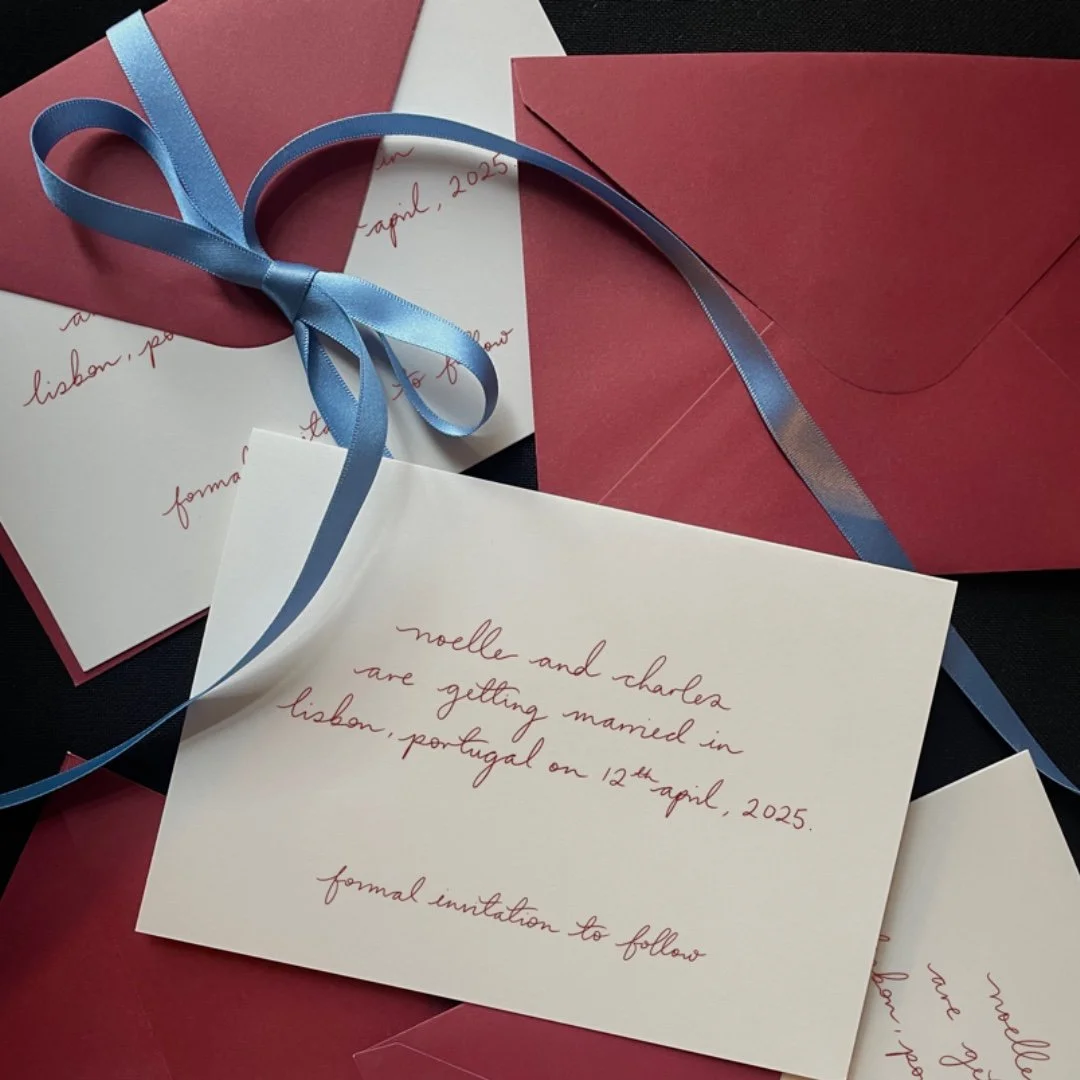 in
april, 2025
a
lisbon, po
to follow
forma
ita
noelle and charles
are getting married in
lisbon, portugal on 12th april, 2025.
formal invitation to follow
noelle
are ge
bon, po